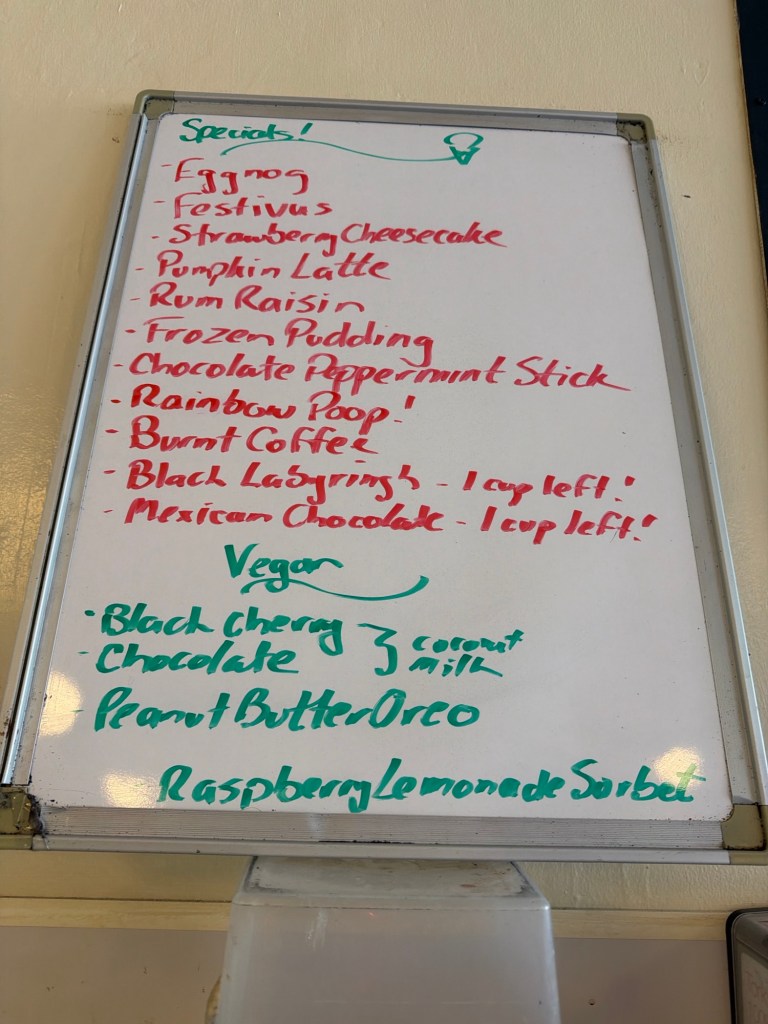 Specials!
- Eggnog
- Festivus
- Strawberry Cheesecake
- Pumpkin Latte
- Rum Raisin
- Frozen Pudding
- Chocolate Peppermint Stick
- Rainbow Poop!
- Burnt Coffee
- Black Labyrinth - 1 cup left!
- Mexican Chocolate - 1 cup left!
Vegan
- Black Cherry } coconut
- Chocolate } milk
- Peanut Butter Oreo
Raspberry Lemonade Sorbet